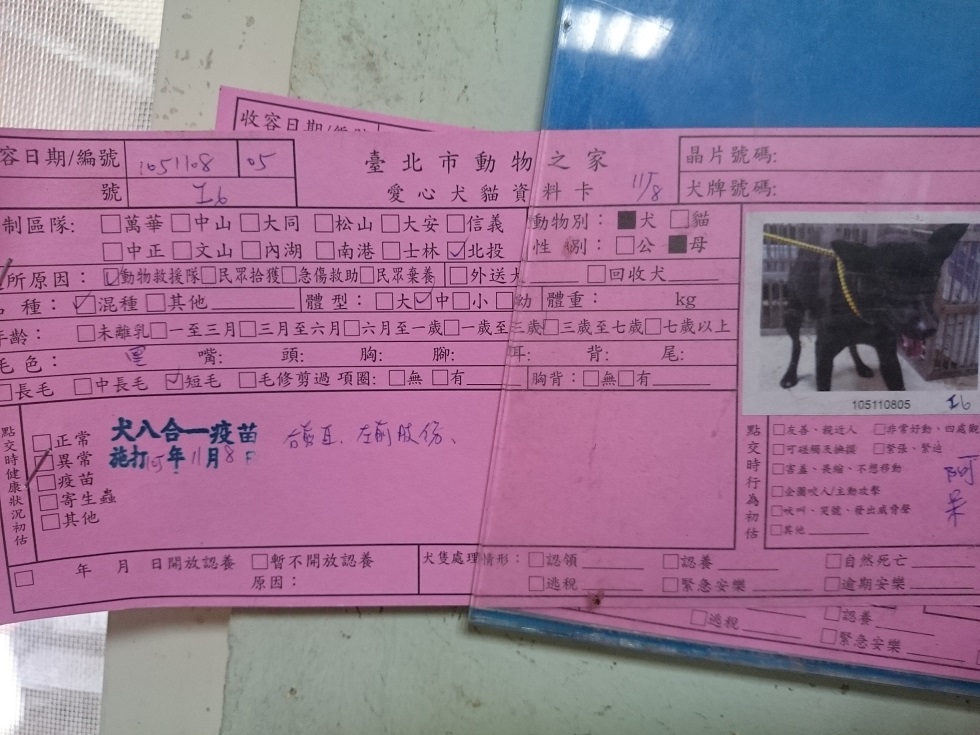 收容日期/編號
容日期/編號 1051108 05 臺北市動物之家 晶片號碼:
號 I6 愛心犬貓資料卡 11/8 犬牌號碼:
制區隊: □萬華 □中山 □大同 □松山 □大安 □信義 動物別： ■犬 □貓
□中正 □文山 □內湖 □南港 □士林 ☑北投 性 別： □公 ■母
所原因： ☑動物救援隊 □民眾拾獲 □急傷救助 □民眾棄養 □外送犬 □回收犬
種： ☑混種 □其他 體型： □大 ☑中 □小 □幼 體重： kg
年齡： □未離乳 □一至三月 □三月至六月 □六月至一歲 □一歲至三歲 □三歲至七歲 □七歲以上
毛色： 黑 嘴: 頭: 胸: 腳: 耳: 背: 尾:
□長毛 □中長毛 ☑短毛 □毛修剪過 項圈: □無 □有 胸背: □無 □有
105110805 I6
點交時健康狀況初估
□正常
☑異常
□疫苗
□寄生蟲
□其他
犬八合一疫苗
施打105年11月8日
左前肢伤、
點交時行為初估
□友善、親近人 □非常好動、四處觀
□可碰觸及擁摸 □緊張、緊迫
□害羞、畏縮、不想移動
□企圖咬人/主動攻擊
□吠叫、哭號、發出威脅聲
□其他
阿呆
□ 年 月 日開放認養 □暫不開放認養
原因：
犬隻處理情形： □認領 □認養 □自然死亡
□逃稅 □緊急安樂 □逾期安樂
□逃稅 □認養
□緊急安樂